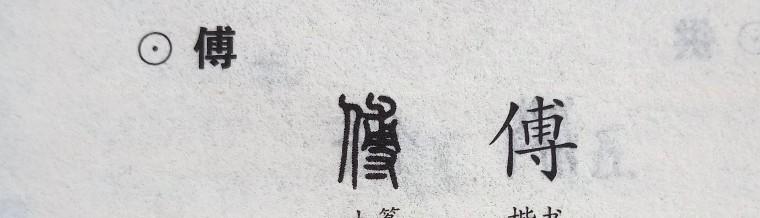 ⊙ 傅
傅 傅
小篆 楷书